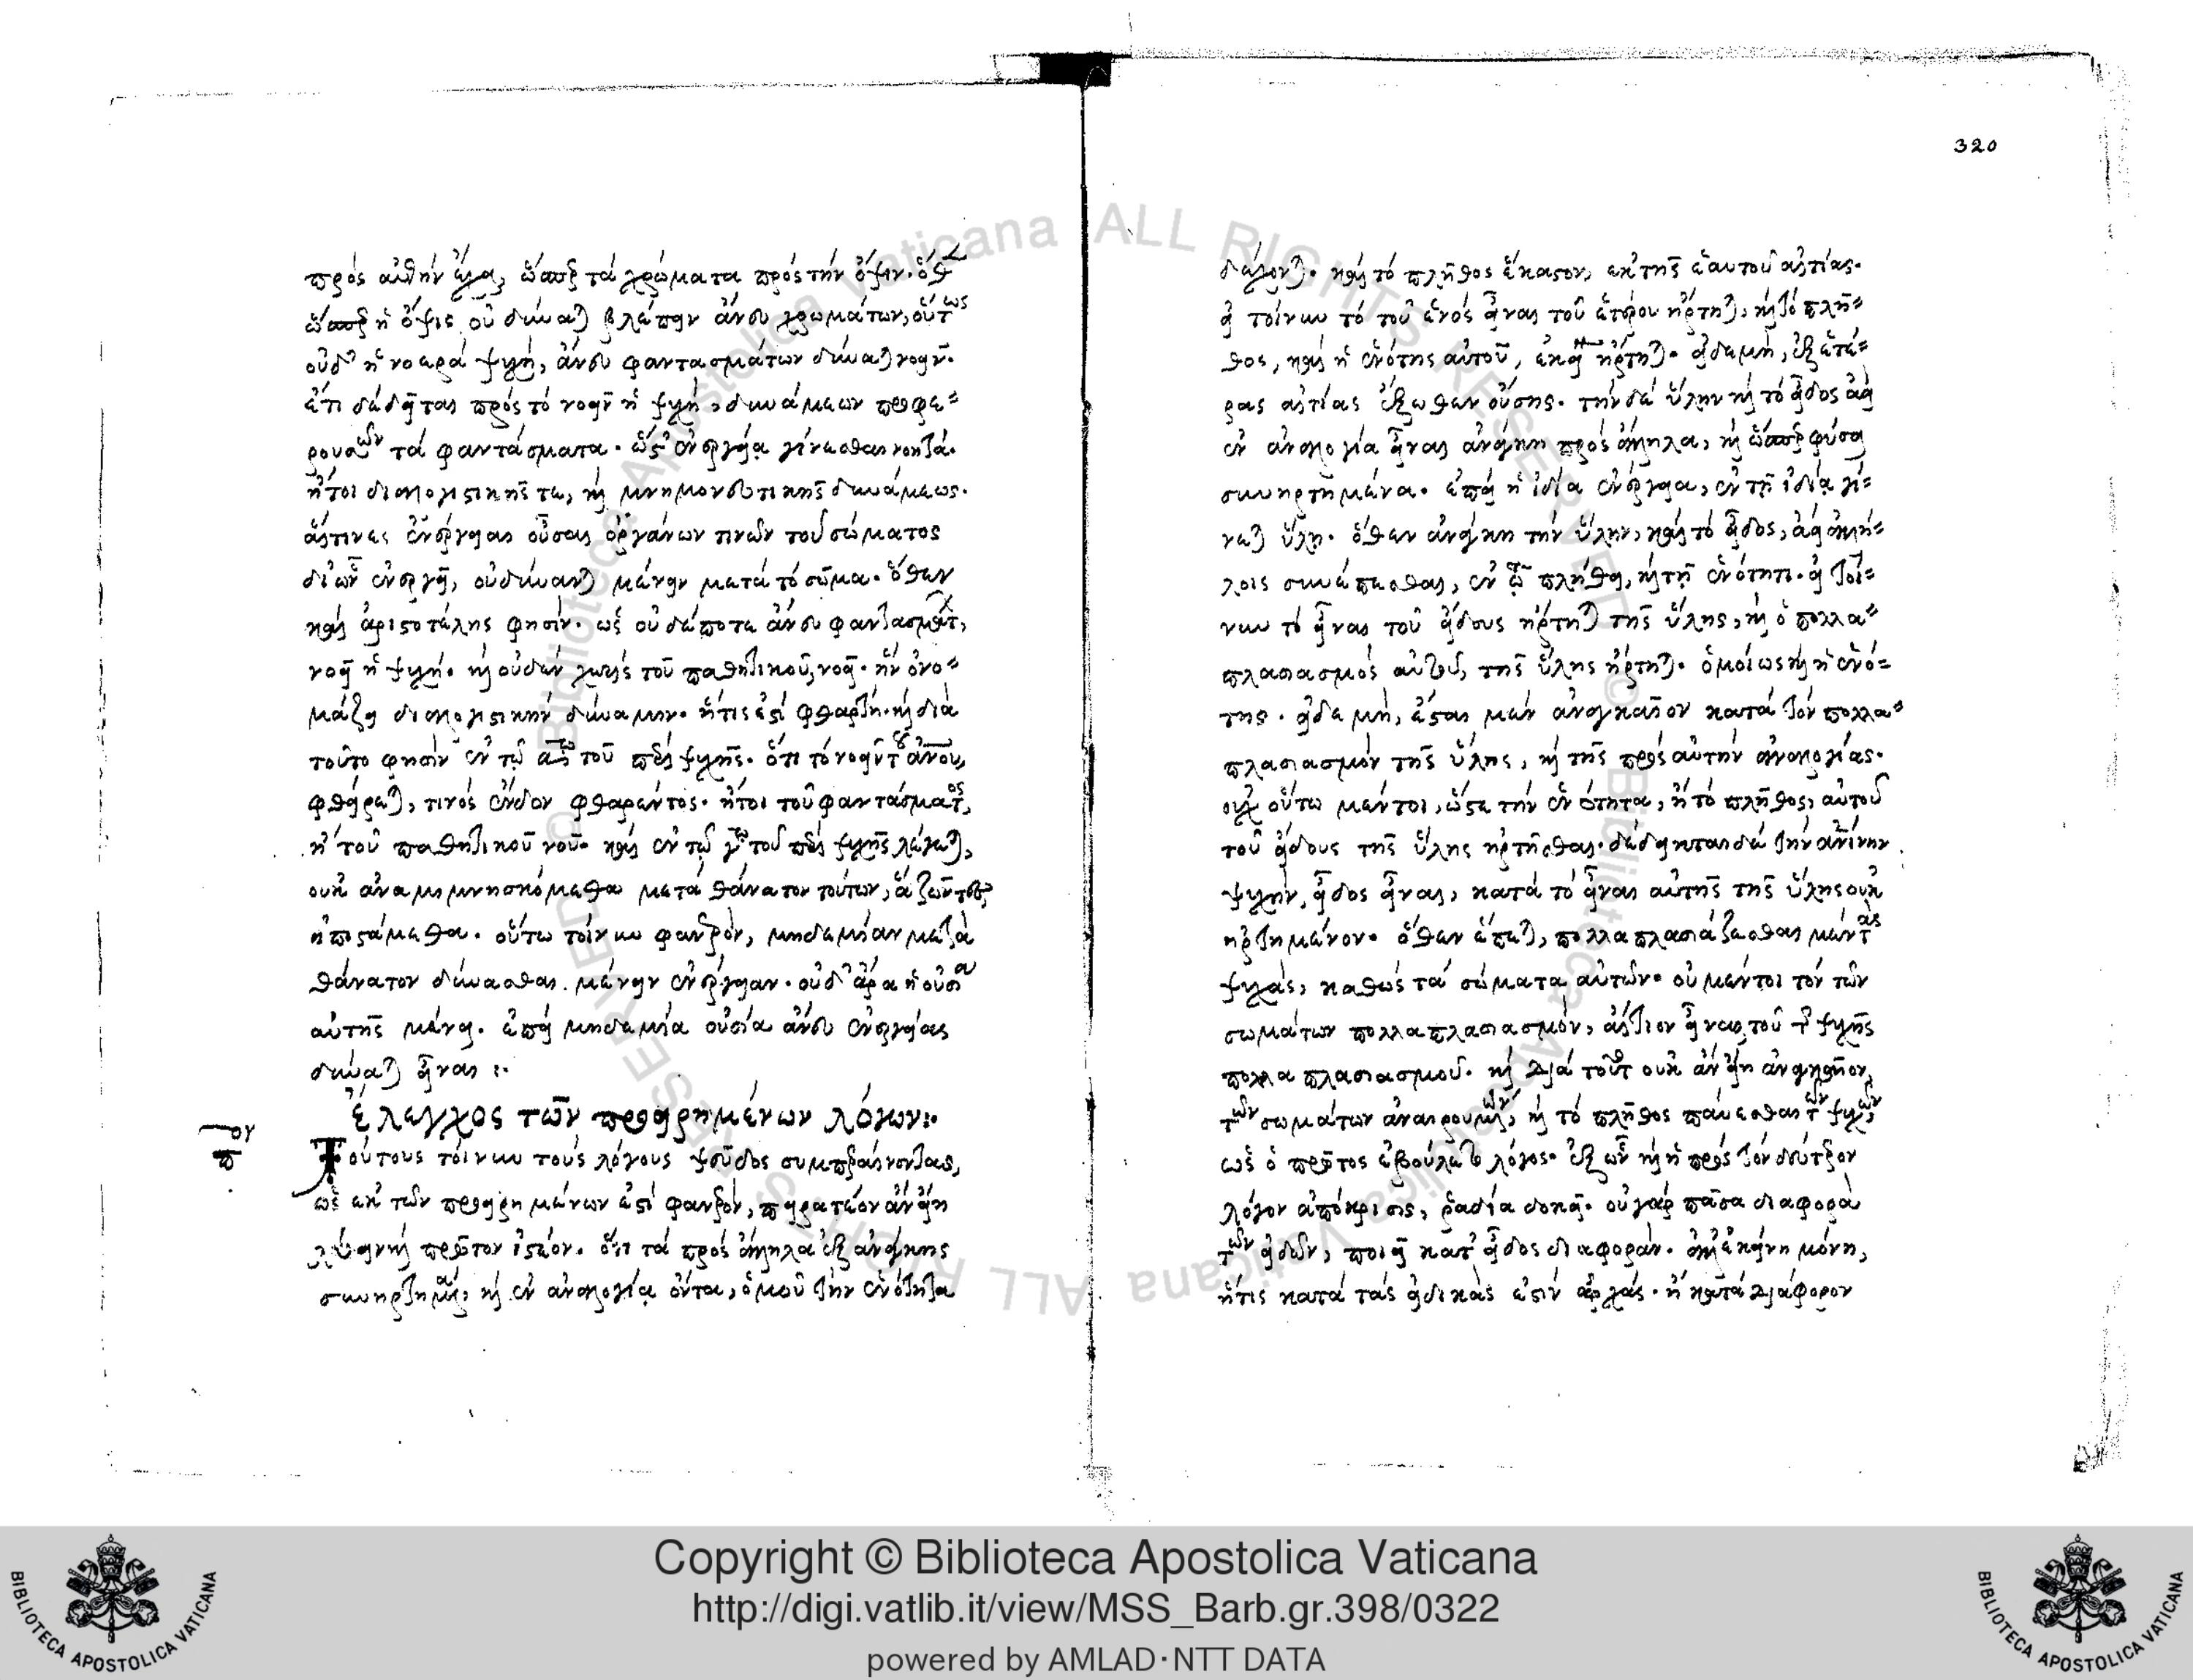 πρὸς αὐτὴν ἔχει, ὥσπερ τὰ χρώματα πρὸς τὴν ὄψιν. ὅθεν
ὥσπερ ἡ ὄψις οὐ δύναται βλέπειν ἄνευ χρωμάτων, οὕτως
οὐδ' ἡ νοερὰ ψυχή, ἄνευ φαντασμάτων δύναται νοεῖν.
ἔτι δέδεῖται πρὸς τὸ νοεῖν ἡ ψυχὴ, δυνάμεων προφε=
ρουσῶν τὰ φαντάσματα. ὥστ' ἐνεργείᾳ γίνεσθαι νοητά.
ἤτοι διαλογιστικῆς τε, καὶ μνημονευτικῆς δυνάμεως.
αἵτινες ἐνέργειαι οὖσαι ὀργάνων τινῶν τοῦ σώματος
δι' ὧν ἐνεργεῖ, οὐ δύνανται μένειν μετὰ τὸ σῶμα. ὅθεν
καὶ ἀριστοτέλης φησίν. ὡς οὐδέποτε ἄνευ φαντάσματ,
νοεῖ ἡ ψυχή. καὶ οὐδὲν χωρὶς τοῦ παθητικοῦ νοεῖ. ἣν ὀνο=
μάζει διαλογιστικὴν δύναμιν. ἥτις ἐστὶ φθαρτή. καὶ διὰ
τοῦτο φησὶν ἐν τῷ α τοῦ περὶ ψυχῆς. ὅτι τὸ νοεῖν τοῦ ἀνου,
φθείρεται, τινὸς ἔνδον φθαρέντος. ἤτοι τοῦ φαντάσματος,
ἢ τοῦ παθητικοῦ νοῦ. καὶ ἐν τῷ γ τοῦ περὶ ψυχῆς λέγεται,
οὐκ ἀναμιμνησκόμεθα μετὰ θάνατον τούτων, ἃ ζῶντες
ἠπιστάμεθα. οὕτω τοίνυν φανερὸν, μηδεμίαν μετὰ
θάνατον δύνασθαι μένειν ἐνέργειαν. οὐδ' ἄρα ἡ οὐσία
αὐτῆς μένει. ἐπεὶ μηδεμία οὐσία ἄνευ ἐνεργείας
δύναται εἶναι :.
ἔλεγχος τῶν προειρημένων λόγων:.
Τούτους τοίνυν τοὺς λόγους ψεῦδος συμπεραίνοντας,
ὡς ἐκ τῶν προειρημένων ἐστὶ φανερὸν, πειρατέον ἂν εἴη
λύειν. καὶ πρῶτον ἰστέον. ὅτι τὰ πρὸς ἄλληλα ἐξ ἀνάγκης
συνηρτημένα, καὶ ἐν ἀναλογίᾳ ὄντα, ὁμοῦ τὴν ἑνότητα
320
δέχονται. καὶ τὸ πλῆθος ἕκαστον, ἐκ τῆς ἑαυτοῦ αἰτίας.
εἰ τοίνυν τὸ τοῦ ἑνὸς εἶναι τοῦ ἑτέρου ἤρτηται, καὶ τὸ πλῆ=
θος, καὶ ἡ ἑνότης αὐτοῦ, ἐκεῖθεν ἤρτηται. εἰ δὲ μή, ἐξ ἑτέ=
ρας αἰτίας ἔξωθεν οὔσης. τὴν δὲ ὕλην καὶ τὸ εἶδος ἀεὶ
ἐν ἀναλογίᾳ εἶναι ἀνάγκη πρὸς ἄλληλα, καὶ ὥσπερ φύσει
συνηρτημένα. ἐπεὶ ἡ ἰδία ἐνέργεια, ἐν τῇ ἰδίᾳ γί=
νεται ὕλῃ. ὅθεν ἀνάγκη τὴν ὕλην, καὶ τὸ εἶδος, ἀεὶ ἀλλή=
λοις συνέπεσθαι, ἐν τῷ πλήθει, καὶ τῇ ἑνότητι. εἰ τοί=
νυν τὸ εἶναι τοῦ εἴδους ἤρτηται τῆς ὕλης, καὶ ὁ πολλα=
πλασιασμὸς αὐτοῦ, τῆς ὕλης ἤρτηται. ὁμοίως καὶ ἡ ἑνό=
της. εἰ δὲ μή, ἔσται μὲν ἀναγκαῖον κατὰ τὸν πολλα=
πλασιασμὸν τῆς ὕλης, καὶ τῆς πρὸς αὐτὴν ἀναλογίας.
οὐχ οὕτω μέντοι, ὥστε τὴν ἑνότητα, ἢ τὸ πλῆθος, αὐτοῦ
τοῦ εἴδους τῆς ὕλης ἠρτῆσθαι. δέδεικται δὲ τὴν ἀνίνην
ψυχὴν, εἶδος εἶναι, κατὰ τὸ εἶναι αὐτῆς τῆς ὕλης οὐκ
ἠρτημένον. ὅθεν ἕπεται, πολλαπλασιάζεσθαι μὲν τὰς
ψυχάς, καθὼς τὰ σώματα αὐτῶν. οὐ μέντοι τὸν τῶν
σωμάτων πολλαπλασιασμὸν, αἴτιον εἶναι τοῦ τῆς ψυχῆς
πολλαπλασιασμοῦ. καὶ διὰ τοῦτο οὐκ ἂν εἴη ἀναγκαῖον,
τῶν σωμάτων ἀναιρουμένων, καὶ τὸ πλῆθος παύεσθαι τῶν ψυχῶν,
ὡς ὁ πρῶτος ἐβούλετο λόγος. ἐξ ὧν καὶ ἡ πρὸς τὸν δεύτερον
λόγον ἀπόκρισις, ῥαδία δοκεῖ. οὐ γὰρ πᾶσα διαφορὰ
τῶν εἰδῶν, ποιεῖ κατ' εἶδος διαφοράν. ἀλλ' ἐκείνη μόνη,
ἥτις κατὰ τὰς εἰδικὰς ἐστὶν ἀρχάς. ἢ κατὰ διάφορον
Copyright © Biblioteca Apostolica Vaticana
http://digi.vatlib.it/view/MSS_Barb.gr.398/0322
powered by AMLAD·NTT DATA
BIBLIOTECA APOSTOLICA VATICANA
BIBLIOTECA APOSTOLICA VATICANA